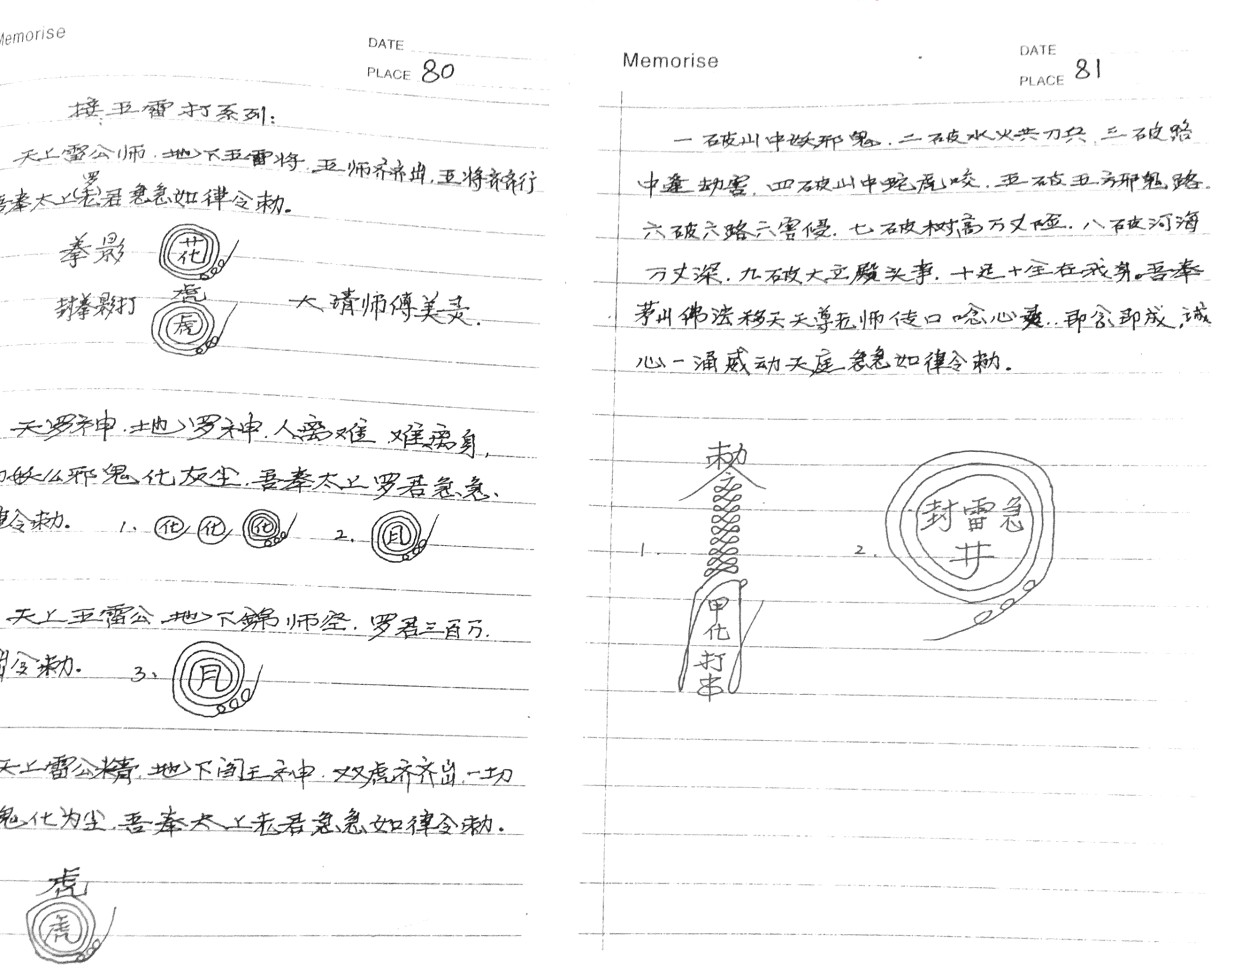 Memorise
DATE
PLACE 80
接五雷打系列:
天上雷公师.地下五雷将.五师齐齐出.五将齐齐行
吾奉太上(罗)老君急急如律令勅。
拳影
花
封拳影打
虎
虎
大请师傅美灵.
天罗神.地罗神.人离难 难离身,
切妖么邪鬼化灰尘.吾奉太上罗君急急、
律令勅。 1、化 化 化 2. 月
天上五雷公 地下 师 . 罗君三百万.
令勅。 3、月
天上雷公精.地下阎王神.双虎齐齐出.一切
鬼化为尘.吾奉太上老君急急如律令勅。
虎
虎
Memorise
DATE
PLACE 81
一破山中妖邪鬼.二破水火共刀兵.三破路
中逢劫害.四破山中蛇虎咬.五破五方邪鬼路.
六破六路六害侵.七破树高万丈 .八破河海
万丈深.九破大立殿头事.十足十全在我身。吾奉
茅山佛法移天天尊老师传口唸心 ..即念即成,诚
心一涌感动天庭急急如律令勅。
勅
1.
甲
化
打
串
2.
封雷急
井